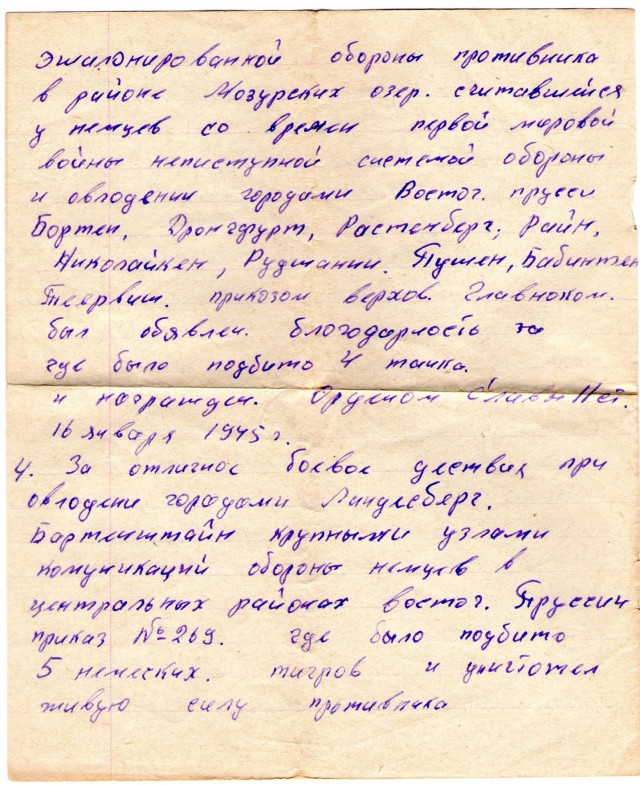 эшалонированной обороны противника
в районе Мозурских озер. считавшейся
у немцев со времен первой мировой
войны непиступной системой обороны
и овлодении городами Восточ. прусси
Бортен, Дронгфурт, Растенберг, Райн,
Николайкен, Рудшанни. Пушен, Бабинтен
Теервиш. приказом верхов. Главноком.
был обявлен. благодарность за
где было подбито 4 танка.
и награжден. Орденом Славы II ст.
16 января 1945 г.
4. За отличное боевое дествия при
овлодени городами Ландесберг.
Бартенштайн крупными узлами
комуникаций обороны немцев в
центральных районах восточ. Пруссии
приказ № 269. где было подбито
5 немеских. тигров и уничтожел
живую силу противника